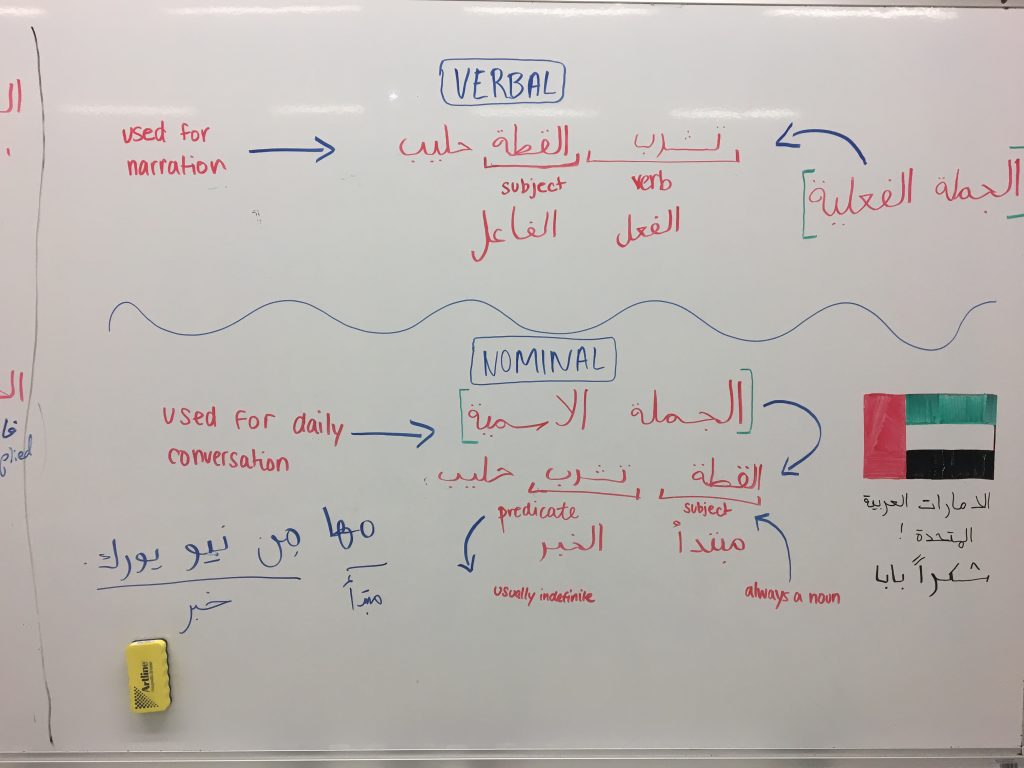 VERBAL
used for
narration
تشرب القطة حليب
verb subject
الفعل الفاعل
[الجملة الفعلية]
NOMINAL
used for daily
conversation
[الجملة الاسمية]
القطة تشرب حليب
subject predicate
مبتدأ الخبر
always a noun
usually indefinite
مها مِن نيو يورك.
مبتدأ خبر
الامارات العربية
المتحدة !
شكراً بابا
Artline
plied